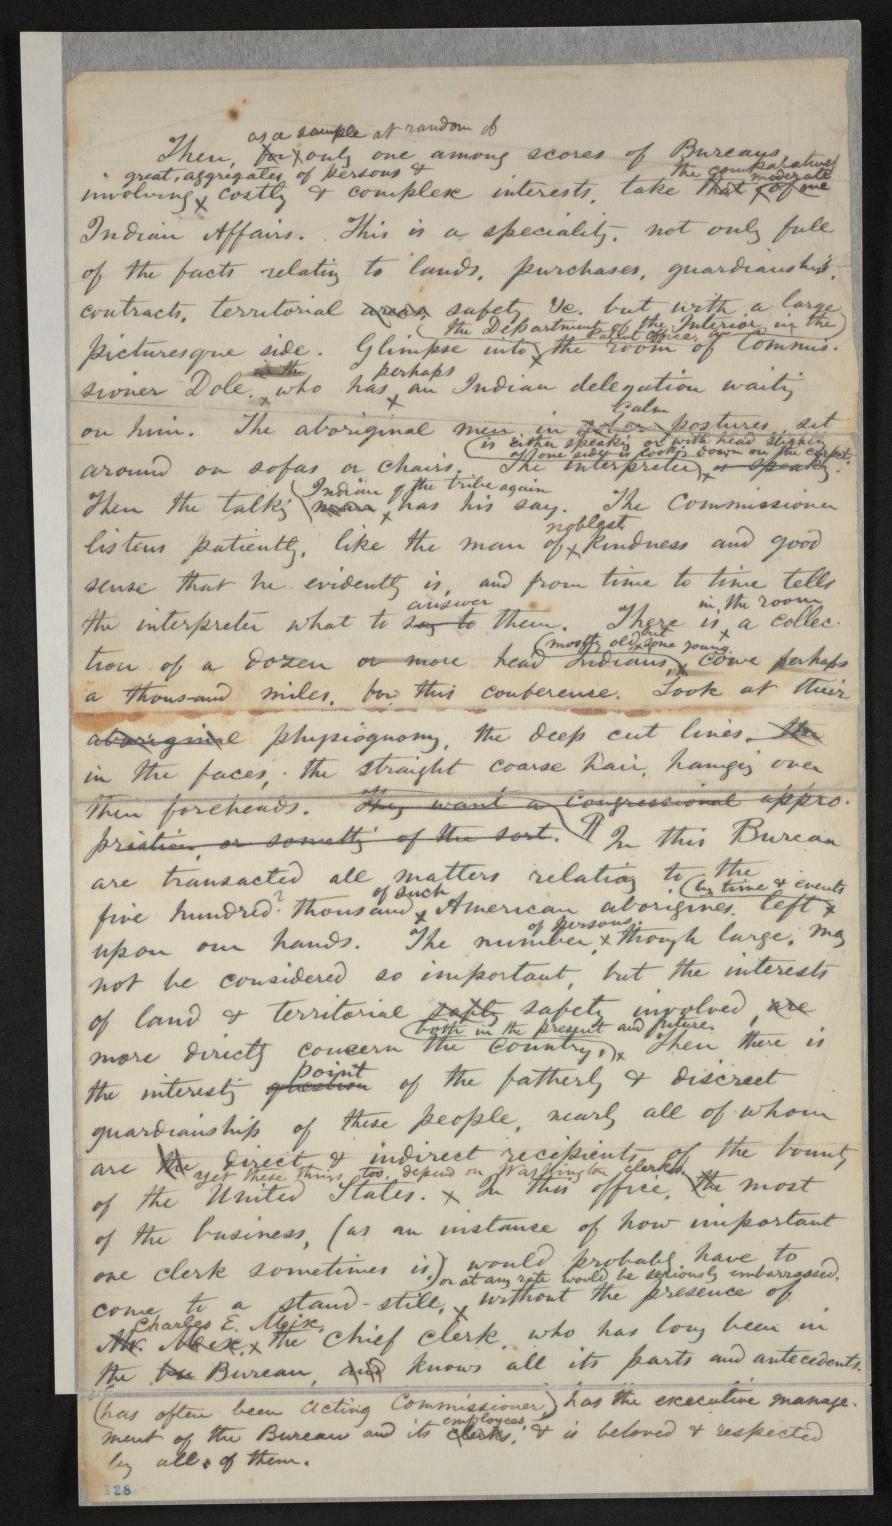 as a sample at random of
Then, for x only one among scores of Bureaus
great, aggregates of persons & the comparatively moderate
involving x costly & complex interests, take that x of one
Indian Affairs. This is a speciality, not only full
of the facts relating to lands, purchases, guardianship,
contracts, territorial areas, safety &c. but with a large
(the Department of the Interior, in the)
Patent Office, or
picturesque side. Glimpse into x the room of Commis-
as the perhaps
sioner Dole, x who has x an Indian delegation waiting
Calm
on him. The aboriginal men in postures, sit
(is either speaking or with head slightly
of one side is looking down on the carpet.
around on sofas or chairs. The interpreter x speaking.
Indian of the tribe again
Then the talking man x has his say. The Commissioner
noblest
listens patiently, like the man of x kindness and good
sense that he evidently is, and from time to time tells
answer in the room
the interpreter what to say to them. There is x a collec-
(mostly old, but some young
tion of a dozen or more head Indians), come perhaps
a thousand miles, for this conference. Look at their
aboriginal physiognomy, the deep cut lines, the
in the faces, the straight coarse hair, hanging over
their foreheads. They want a congressional appro-
priation or something of the sort. ¶ In this Bureau
are transacted all matters relating to the
of such (by time & events
five hundred? thousand x American aborigines left x
of persons,
upon our hands. The number x though large, may
not be considered so important, but the interests
of land & territorial safety safety involved, are
(both in the present and future.
more directly concern the country,) x Then there is
point
the interesting question of the fatherly & discreet
guardianship of these people, nearly all of whom
are the direct & indirect recipients of the bounty
yet these things, too, depend on Washington clerks.
of the United States. x In this office, the most
of the business, (as an instance of how important
one clerk sometimes is,) would probably have to
or at any rate would be seriously embarrassed,
come to a stand-still, x without the presence of
Charles E. Meix,
Mr. Meix, x the Chief Clerk, who has long been in
the Bureau, and knows all its parts and antecedents.
(has often been Acting Commissioner) has the executive manage-
employees,
ment of the Bureau and its clerks, & is beloved & respected
by all of them.
128